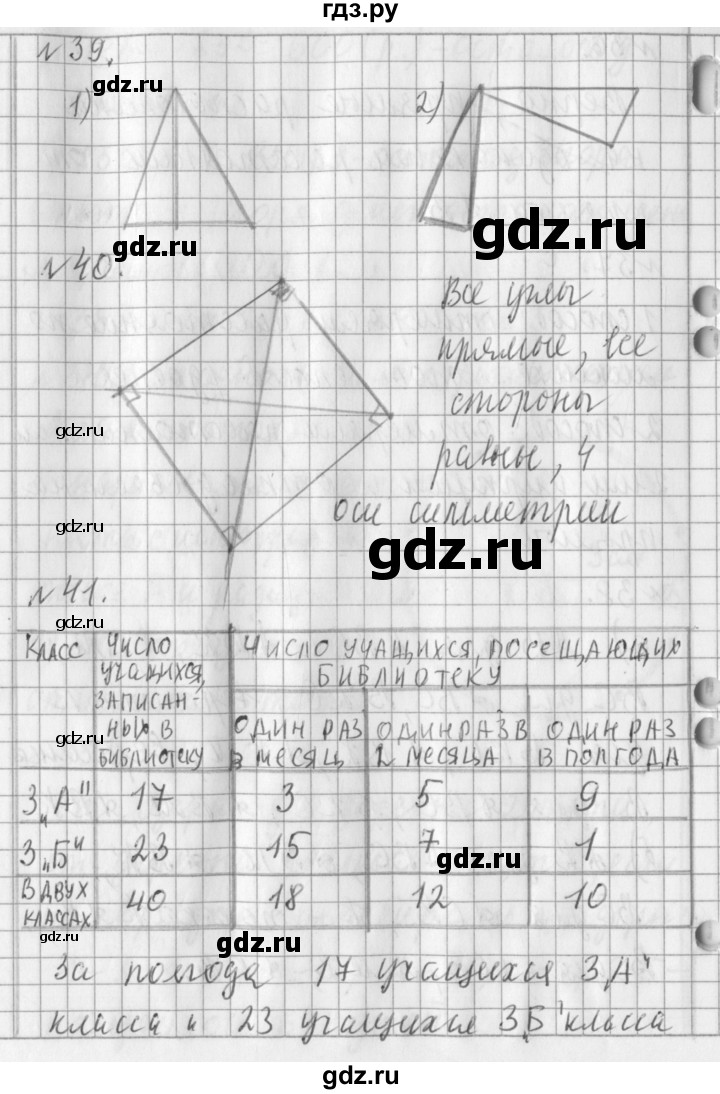 гдз.ру
№39.
gdz.ru
1)
2)
gdz.ru
gdz.ru
№40.
Все углы
прямые, все
стороны
gdz.ru
равны, 4
оси симметрии
gdz.ru
gdz.ru
№41.
gdz.ru
КЛАСС
ЧИСЛО УЧАЩИХСЯ, ЗАПИСАН-НЫХ В БИБЛИОТЕКУ
ЧИСЛО УЧАЩИХСЯ, ПОСЕЩАЮЩИХ БИБЛИОТЕКУ
gdz.ru
ОДИН РАЗ В МЕСЯЦ
ОДИН РАЗ В 2 МЕСЯЦА
ОДИН РАЗ В ПОЛГОДА
3 „А" 17 3 5 9
3 „Б" 23 15 7 1
gdz.ru
В ДВУХ КЛАССАХ 40 18 12 10
gdz.ru
gdz.ru
За полгода 17 учащихся 3„А"
класса и 23 учащихся 3„Б" класса
gdz.ru